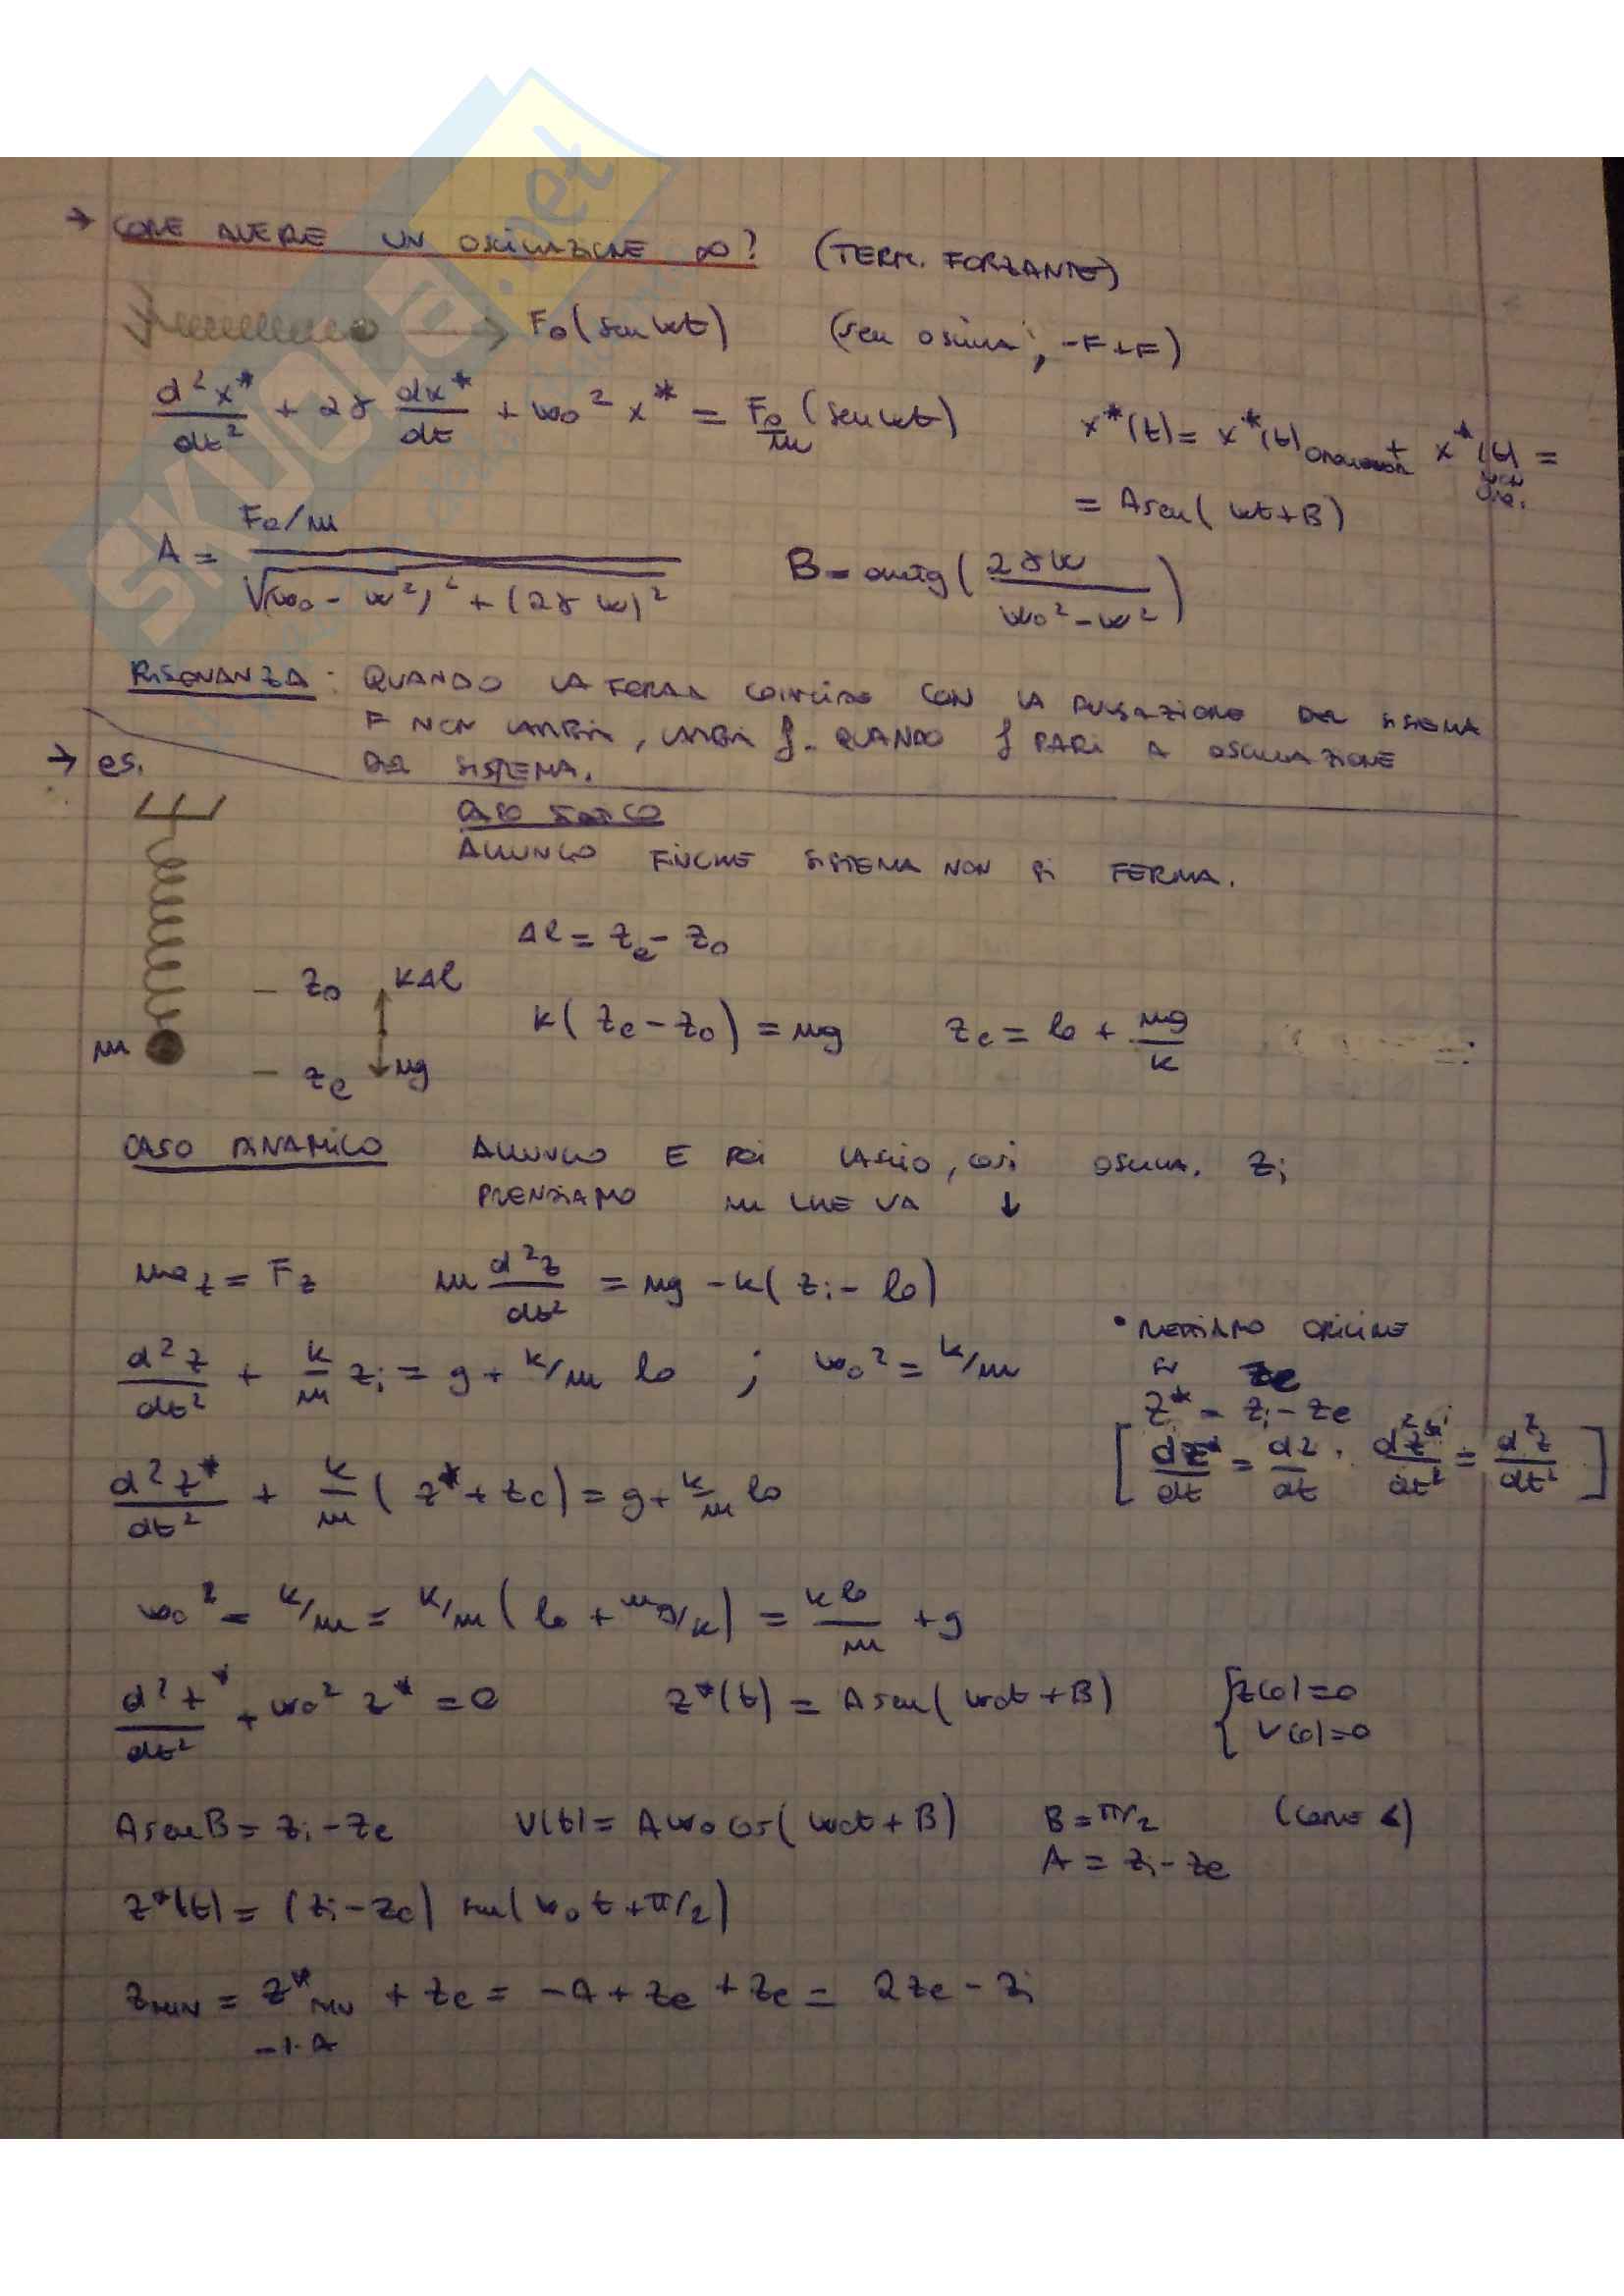 → COME AVERE UN OSCILLAZIONE ∞? (TERM. FORZANTE)
→ F₀(sen wt) (sen oscilla, -F+F)
d²x*/dt² + 2γ dx*/dt + w₀² x* = F₀/m (sen wt)
x*(t) = x*(t) + x*(t) NON OM. =
= A sen(wt+B)
A = F₀/m / √(w₀ - w²)² + (2γw)²
B = arctg(2γw / w₀² - w²)
RISONANZA: QUANDO LA FORZA COINCIDE CON LA PULSAZIONE DEL SISTEMA
F NON CAMBIA, CAMBIA f. QUANDO f PARI A OSCILLAZIONE
DEL SISTEMA.
→ es.
CASO STATICO
ALLUNGO FINCHE SISTEMA NON SI FERMA.
Δl = ze - z₀
z₀ KΔl
k(ze - z₀) = mg ze = l₀ + mg/k
m
ze mg
CASO DINAMICO ALLUNGO E POI LASCIO, COSI OSCILLA. zi
PRENDIAMO m CHE VA ↓
maz = Fz m d²z/dt² = mg - k(zi - l₀)
• METTIAMO ORIGINE
IN ze
d²z/dt² + k/m zi = g + k/m l₀ ; w₀² = k/m
z* = zi - ze
[dz*/dt = dz/dt . d²z*/dt² = d²z/dt²]
d²z*/dt² + k/m (z* + ze) = g + k/m l₀
w₀² = k/m = k/m (l₀ + mg/k) = kl₀/m + g
d²z*/dt² + w₀² z* = 0 z*(t) = A sen(w₀t + B) { z(0)=0
V(0)=0
A sen B = zi - ze V(t) = A w₀ cos(w₀t + B) B = π/2
A = zi - ze
z*(t) = (zi - ze) sen(w₀t + π/2)
zMIN = z*MIN + ze = -A + ze + ze = 2ze - zi
-1·A
SKUOLA.net